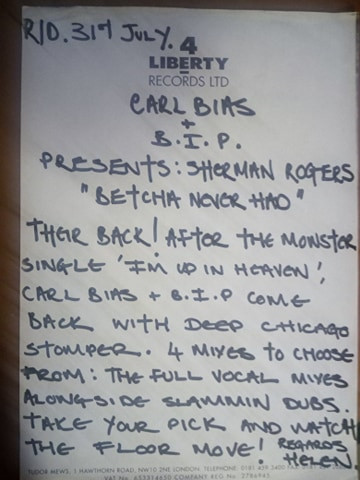 R/D. 31st JULY.
4
LIBERTY
RECORDS LTD
CARL BIAS
+
B.I.P.
PRESENTS: SHERMAN ROGERS
"BETCHA NEVER HAD"
THEIR BACK! AFTER THE MONSTER
SINGLE 'I'M UP IN HEAVEN',
CARL BIAS + B.I.P COME
BACK WITH DEEP CHICAGO
STOMPER. 4 MIXES TO CHOOSE
FROM: THE FULL VOCAL MIXES
ALONG-SIDE SLAMMIN DUBS.
TAKE YOUR PICK AND WATCH
THE FLOOR MOVE! REGARDS
HELEN.
TUDOR MEWS, 1 HAWTHORN ROAD, NW10 2NE LONDON. TELEPHONE. 0181
COMPANY REG No.